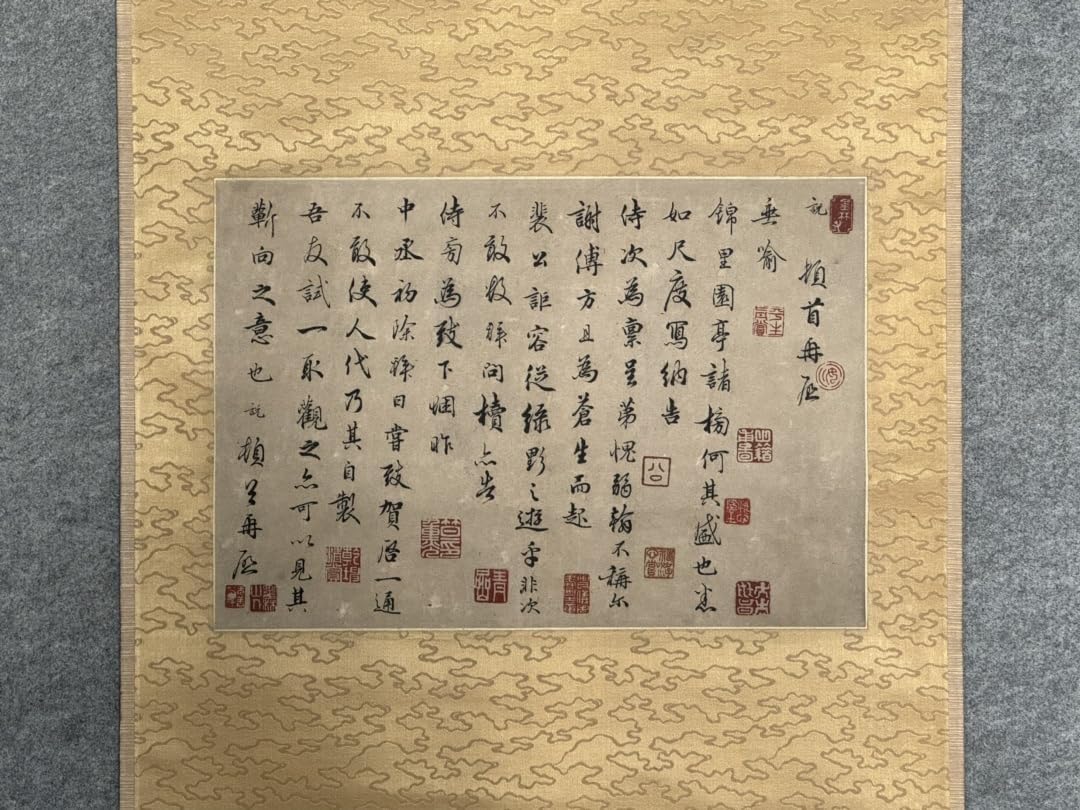 說頓首再啟
垂喻
錦里園亭諸榜何其盛也悉
如尺度寫納告
侍次為稟呈第愧弱翰不稱尔
謝傅方且為蒼生而起
裴公詎容從綠野之遊乎非次
不敢数拜问櫝亦告
侍旁為致下悃昨
中丞初除拜日嘗致賀啓一通
不敢使人代乃其自製
吾友試一取觀之亦可以見其
蘄向之意也說頓首再啟